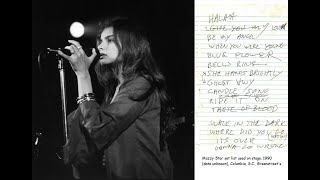 HALAH
GIVE YOU MY LOVE
BE MY ANGEL
WHEN YOU WERE YOUNG
BLUE FLOWER
BELLS RING
SHE HANGS BRIGHTLY
GHOST HWY
CANDLE SONG
RIDE IT ON
TASTE OF BLOOD
WALK IN THE DARK
WHERE DID YOU
IT'S OVER
GONNA GO WRONG
Mazzy Star set list used on stage, 1990
(date unknown), Columbia, S.C., Greenstreet's